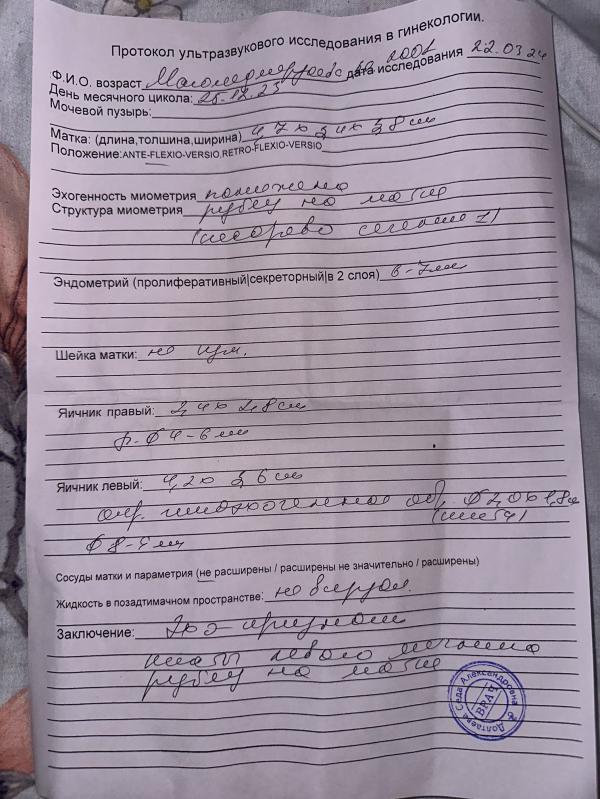 Протокол ультразвукового исследования в гинекологии.
Ф.И.О. возраст дата исследования 22.03.24
День месячного цикола: 25.12.23
Мочевой пузырь:
Матка: (длина,толшина,ширина) 4,7х 3,4х 3,8см
Положение:ANTE-FLEXIO-VERSIO,RETRO-FLEXIO-VERSIO
Эхогенность миометрия понижена
Структура миометрия рубец на матке
Эндометрий (пролиферативный|секреторный|в 2 слоя) 6-7мм
Шейка матки: не изм.
Яичник правый: 2,8см
ф. ϕ 4-6мм
Яичник левый: 4,2х 3,6см
ϕ 2,0х1,8см
Сосуды матки и параметрия (не расширены / расширены не значительно / расширены)
Жидкость в позадтимачном пространстве: не визуал.
Заключение: Эхо признаки
кисты левого яичника
рубец на матке
Долтаева Седа Александровна
ВРАЧ